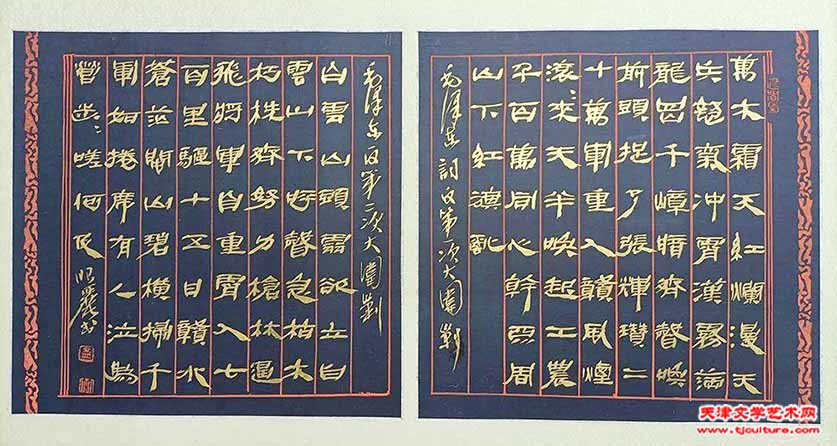 萬木霜天紅爛漫天
兵怒氣冲霄漢霧滿
龍岡千嶂暗齊聲喚
前頭捉了張輝瓚二
十萬軍重入贛風煙
滾、來天半喚起工農
千百萬同心幹不周
山下紅旗亂
毛澤東詞反第一次大圍剿
毛澤东反第二次大圍剿
白雲山頭雲欲立白
雲山下呼聲急枯木
朽株齊努力槍林逼
飛將軍自重霄入七
百里驅十五日贛水
蒼茫閩山碧橫掃千
軍如捲席有人泣為
營步、嗟何及
天津文学艺术网
www.tjculture.com